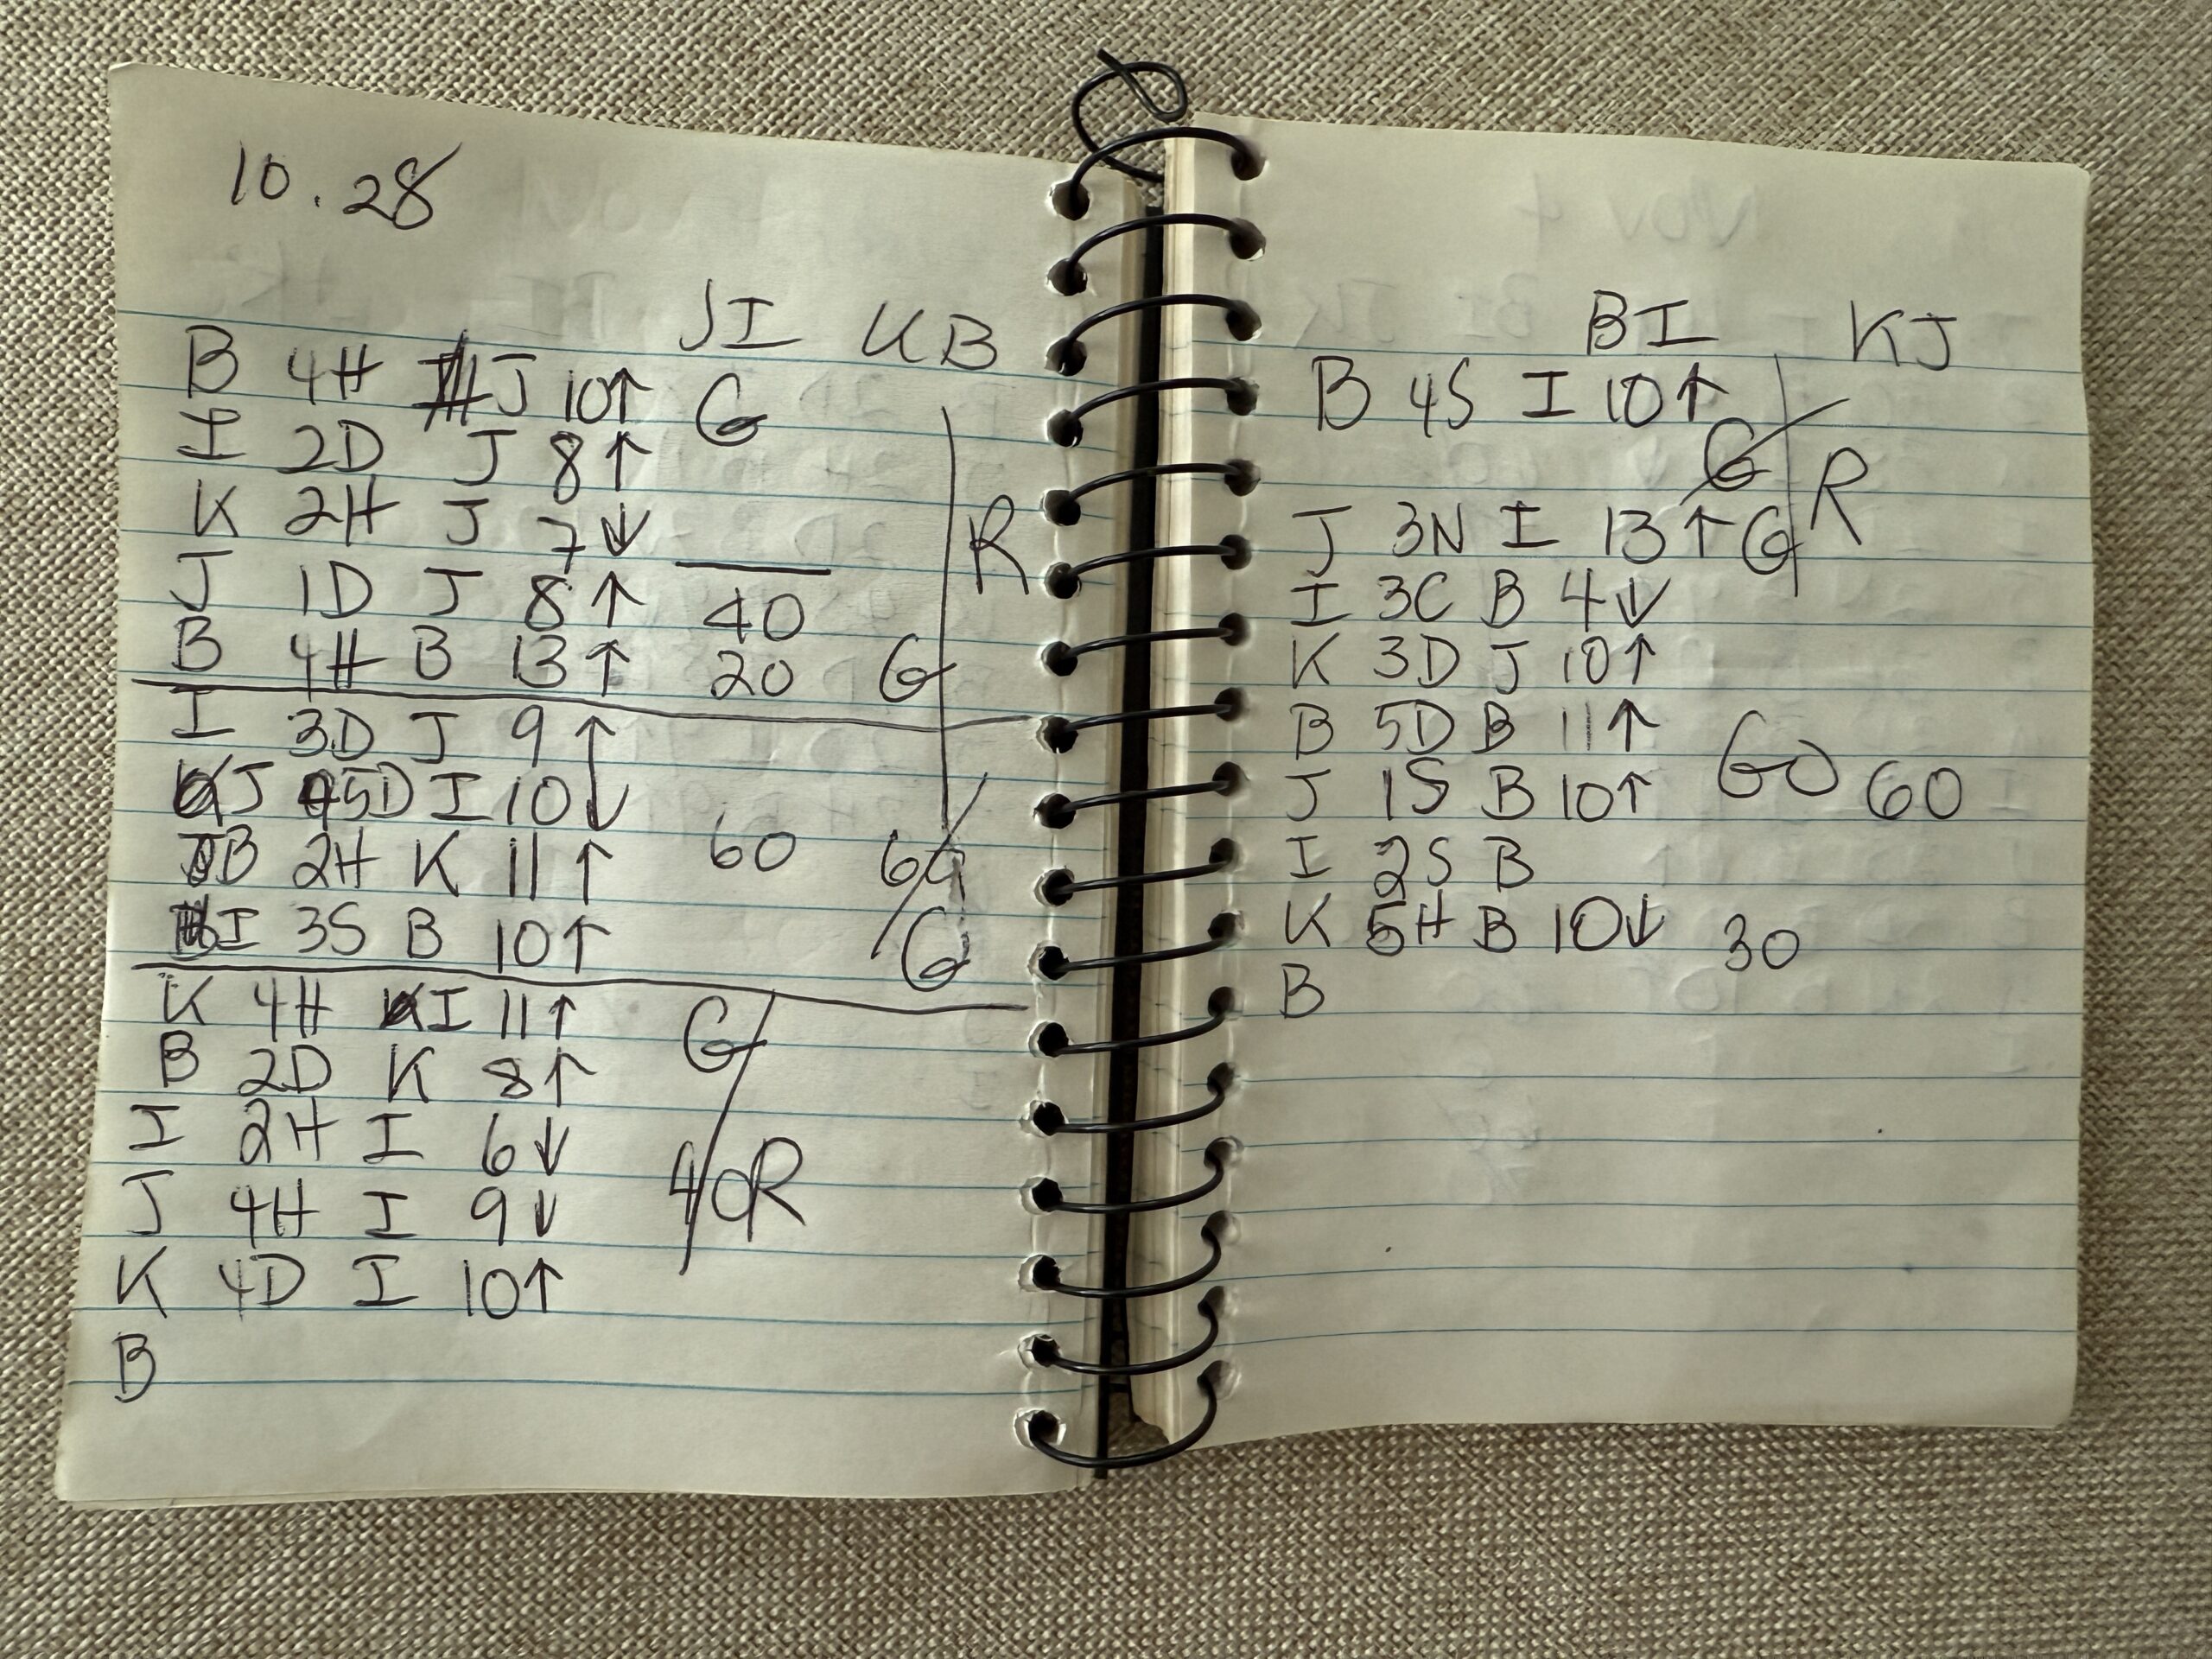 10.28
JI KB
B 4H J 10↑ G
I 2D J 8↑
K 2H J 7↓ R
J 1D J 8↑ 40
B 4H B 13↑ 20 G
I 3D J 9↑
J 5D I 10↓
B 2H K 11↑ 60 60
I 3S B 10↑ G
K 4H I 11↑ G
B 2D K 8↑
I 2H I 6↓
J 4H I 9↓ 40 R
K 4D I 10↑
B
BI KJ
B 4S I 10↑
G R
J 3N I 13↑ G
I 3C B 4↓
K 3D J 10↑
B 5D B 11↑
J 1S B 10↑ 60 60
I 2S B
K 5H B 10↓ 30
B